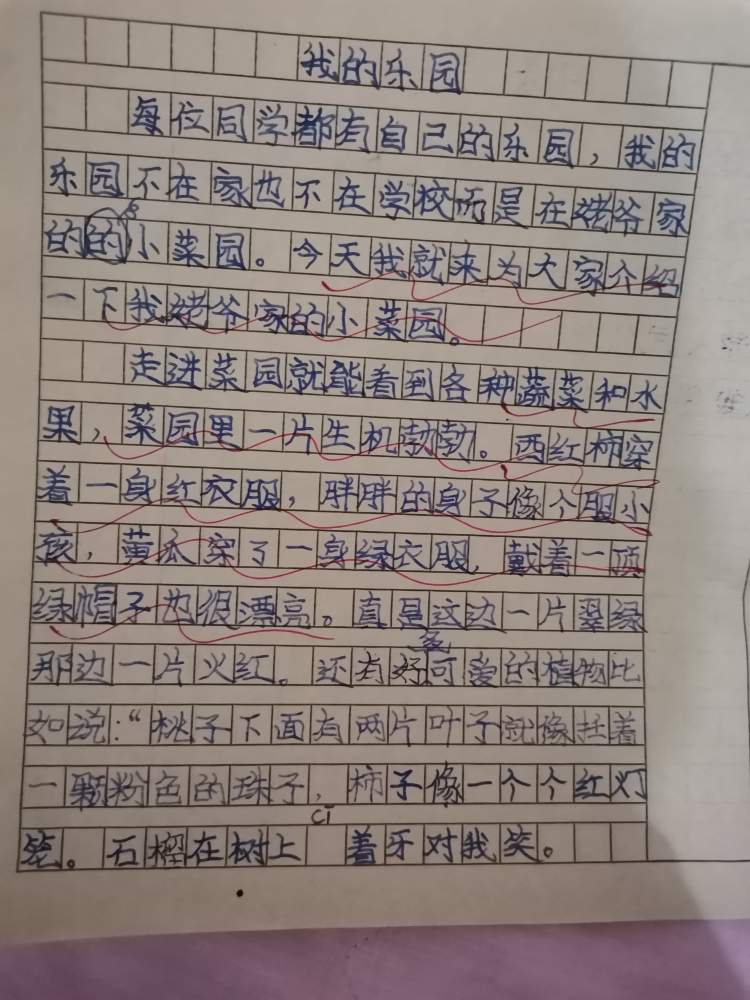 我的乐园
每位同学都有自己的乐园，我的
乐园不在家也不在学校而是在姥爷家
的的小菜园。今天我就来为大家介绍
一下我姥爷家的小菜园。
走进菜园就能看到各种蔬菜和水
果，菜园里一片生机勃勃。西红柿穿
着一身红衣服，胖胖的身子像个服小
孩，黄瓜穿了一身绿衣服，戴着一顶
绿帽子也很漂亮。真是这边一片翠绿
那边一片火红。还有好多可爱的植物比
如说：“桃子下面有两片叶子就像托着
一颗粉色的珠子，柿子像一个个红灯
笼。石榴在树上cī着牙对我笑。